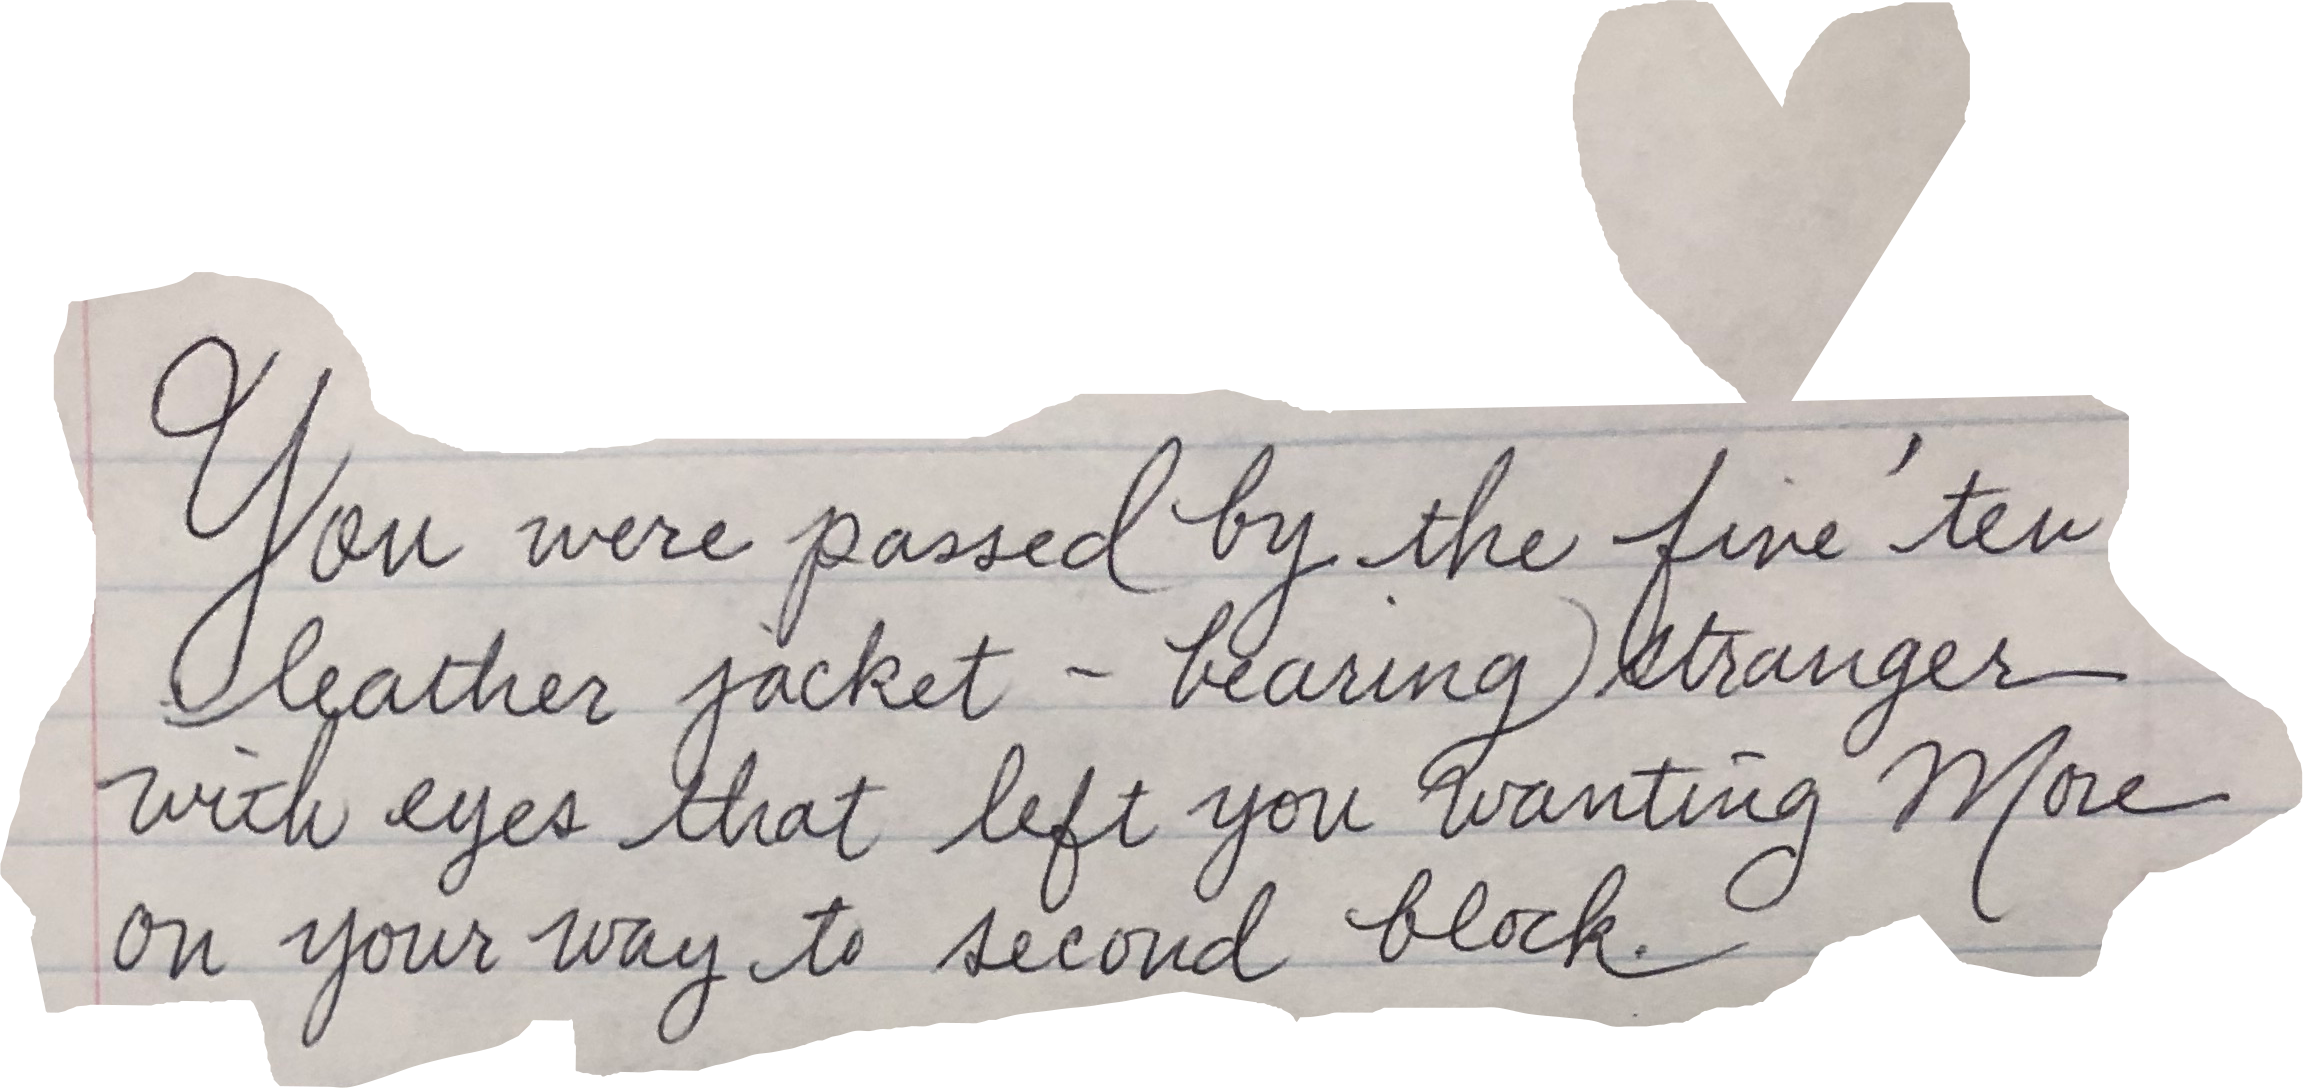 You were passed by the five 'ten
leather jacket - bearing stranger
with eyes that left you wanting More
on your way to second block.